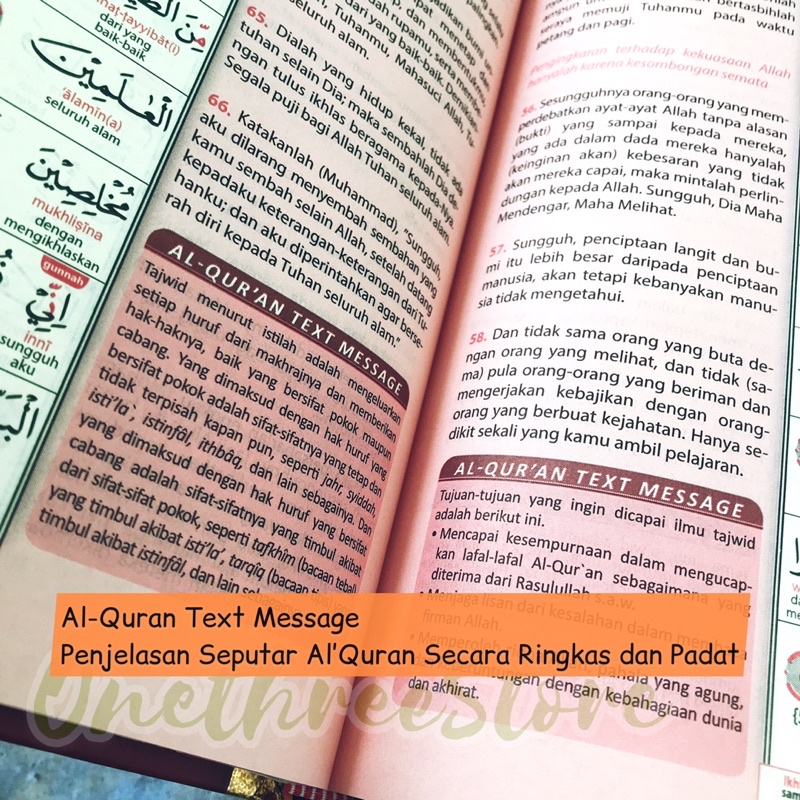 مِّنَ
ṭ-ṭayyibāt(i)
dari yang
baik-baik
الْعٰلَمِيْنَ
'ālamīn(a)
seluruh alam
مُخْلِصِيْنَ
mukhliṣīna
dengan
mengikhlaskan
gunnah
اِنِّيْ
innī
sungguh
aku
seluruh alam.
65. Dialah yang hidup kekal, tidak ada
tuhan selain Dia; maka sembahlah Dia de-
ngan tulus ikhlas beragama kepada-Nya.
Segala puji bagi Allah Tuhan seluruh alam.
66. Katakanlah (Muhammad), "Sungguh,
aku dilarang menyembah sembahan yang
kamu sembah selain Allah, setelah datang
kepadaku keterangan-keterangan dari Tu-
hanku; dan aku diperintahkan agar berse-
rah diri kepada Tuhan seluruh alam."
AL-QUR'AN TEXT MESSAGE
Tajwid menurut istilah adalah mengeluarkan
setiap huruf dari makhrajnya dan memberikan
hak-haknya, baik yang bersifat pokok maupun
cabang. Yang dimaksud dengan hak huruf yang
bersifat pokok adalah sifat-sifatnya yang tetap dan
tidak terpisah kapan pun, seperti jahr, syiddah,
isti'la` istinfâl, ithbâq, dan lain sebagainya. Dan
yang dimaksud dengan hak huruf yang bersifat
cabang adalah sifat-sifatnya yang timbul akibat
dari sifat-sifat pokok, seperti tafkhîm (bacaan tebal)
yang timbul akibat isti'la', tarqîq (bacaan tipis)
timbul akibat istinfâl, dan lain sebagainya.
bertasbihlah
memuji Tuhanmu pada waktu
petang dan pagi.
Pengingkaran terhadap kekuasaan Allah
hanyalah karena kesombongan semata
56. Sesungguhnya orang-orang yang mem-
perdebatkan ayat-ayat Allah tanpa alasan
(bukti) yang sampai kepada mereka,
yang ada dalam dada mereka hanyalah
(keinginan akan) kebesaran yang tidak
akan mereka capai, maka mintalah perlin-
dungan kepada Allah. Sungguh, Dia Maha
Mendengar, Maha Melihat.
57. Sungguh, penciptaan langit dan bu-
mi itu lebih besar daripada penciptaan
manusia, akan tetapi kebanyakan manu-
sia tidak mengetahui.
58. Dan tidak sama orang yang buta de-
ngan orang yang melihat, dan tidak (sa-
ma) pula orang-orang yang beriman dan
mengerjakan kebajikan dengan orang-
orang yang berbuat kejahatan. Hanya se-
dikit sekali yang kamu ambil pelajaran.
AL-QUR'AN TEXT MESSAGE
Tujuan-tujuan yang ingin dicapai ilmu tajwid
adalah berikut ini.
• Mencapai kesempurnaan dalam mengucap-
kan lafal-lafal Al-Qur`an sebagaimana yang
diterima dari Rasulullah s.a.w.
• Menjaga lisan dari kesalahan dalam
firman Allah.
• Memperoleh pahala yang agung,
keberuntungan dengan kebahagiaan dunia
dan akhirat.
Al-Quran Text Message
Penjelasan Seputar Al'Quran Secara Ringkas dan Padat
Onethreestore